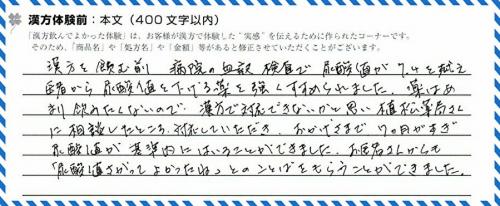 漢方体験前：本文（400文字以内）
「漢方飲んでよかった体験」は、お客様が漢方で体験した“実感”を伝えるために作られたコーナーです。
そのため、「商品名」や「処方名」や「金額」等があると修正させていただくことがございます。
漢方を飲む前 病院の血液検査で尿酸値が7.4を超え
医師から尿酸値を下げる薬を強くすすめられました。薬はあ
まり飲みたくないので、漢方で対応できないかと思い植松薬局さん
に相談したところ、対応していただき、おかげさまで7ヶ月がすぎ
尿酸値が基準内にはいることができました。お医者さんからも
「尿酸値さがってよかったね」とのことばをもらうことができました。